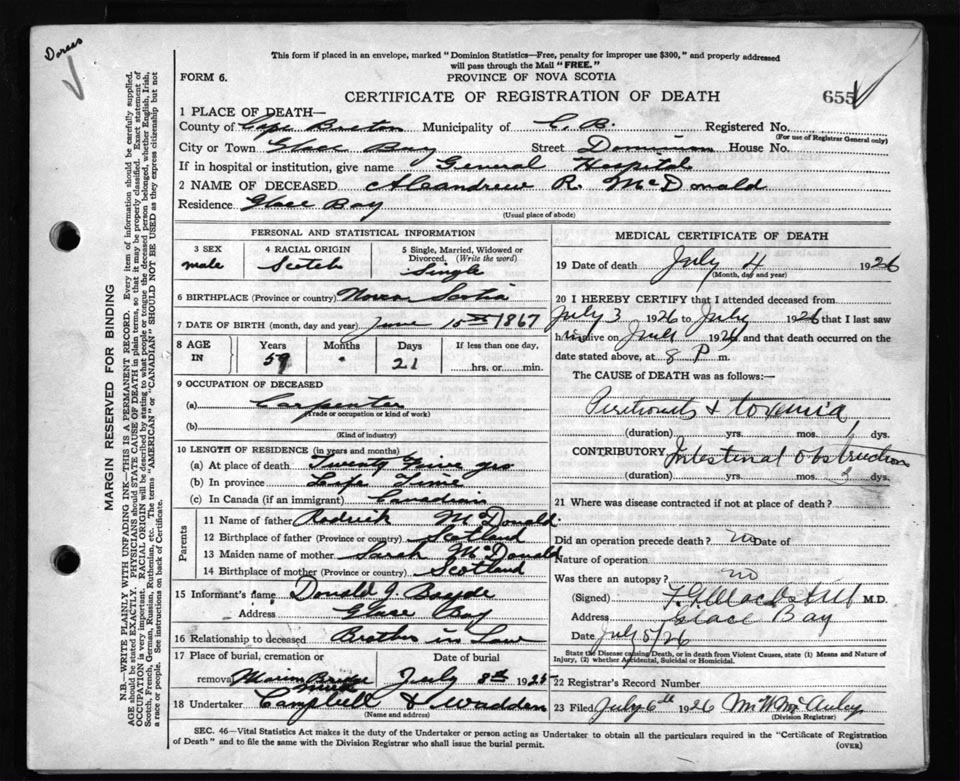 Dorcas
This form if placed in an envelope, marked "Dominion Statistics—Free, penalty for improper use $300," and properly addressed
will pass through the Mail "FREE."
FORM 6.
PROVINCE OF NOVA SCOTIA
CERTIFICATE OF REGISTRATION OF DEATH
655
MARGIN RESERVED FOR BINDING
N.B.—WRITE PLAINLY WITH UNFADING INK—THIS IS A PERMANENT RECORD. Every item of information should be carefully supplied.
AGE should be stated EXACTLY. PHYSICIANS should STATE CAUSE OF DEATH in plain terms, so that it may be properly classified. Exact statement of
OCCUPATION is very important. RACIAL ORIGIN will be described by stating to what people or tongue the deceased person belonged, whether English, Irish,
Scotch, French, German, Russian, Ruthenian, etc. The terms "AMERICAN" or "CANADIAN" SHOULD NOT BE USED as they express citizenship but not
a race or people. See instructions on back of Certificate.
1 PLACE OF DEATH—
County of Cape Breton Municipality of C. B. Registered No.
(For use of Registrar General only)
City or Town Glace Bay Street Dominion House No.
If in hospital or institution, give name General Hospital
2 NAME OF DECEASED R. McDonald
Residence Glace Bay
(Usual place of abode)
PERSONAL AND STATISTICAL INFORMATION
3 SEX 4 RACIAL ORIGIN 5 Single, Married, Widowed or
Divorced. (Write the word)
male Scotch Single
6 BIRTHPLACE (Province or country) Nova Scotia
7 DATE OF BIRTH (month, day and year) June 15th 1867
8 AGE IN Years Months Days If less than one day,
59 21 hrs. or min.
9 OCCUPATION OF DECEASED
(a) Carpenter
(Trade or occupation or kind of work)
(b)
(Kind of industry)
10 LENGTH OF RESIDENCE (in years and months)
(a) At place of death Twenty yrs
(b) In province Life Time
(c) In Canada (if an immigrant) Canadian
Parents
11 Name of father Roderick McDonald
12 Birthplace of father (Province or country) Scotland
13 Maiden name of mother Sarah McDonald
14 Birthplace of mother (Province or country) Scotland
15 Informant's name Donald J
Address Glace Bay
16 Relationship to deceased Brother in Law
17 Place of burial, cremation or Date of burial
removal Marion Bridge July 8th 1925
18 Undertaker Campbell & Wadden
(Name and address)
MEDICAL CERTIFICATE OF DEATH
19 Date of death July 4 1926
(Month, day and year)
20 I HEREBY CERTIFY that I attended deceased from
July 3 1926 to July 1926 that I last saw
h alive on July 1926 and that death occurred on the
date stated above, at 8 P m.
The CAUSE of DEATH was as follows:
Peritonitis & toxemia
(duration) yrs. mos. 1 dys.
CONTRIBUTORY Intestinal obstruction
(duration) yrs. mos. 3 dys.
21 Where was disease contracted if not at place of death?
Did an operation precede death? no Date of
Nature of operation
Was there an autopsy? no
(Signed) M.D.
Address Glace Bay
Date July 5/26
State the Disease causing Death, or in death from Violent Causes, state (1) Means and Nature of
Injury, (2) whether Accidental, Suicidal or Homicidal.
22 Registrar's Record Number
23 Filed July 6th 1926 McAuley
(Division Registrar)
SEC. 46—Vital Statistics Act makes it the duty of the Undertaker or person acting as Undertaker to obtain all the particulars required in the "Certificate of Registration
of Death" and to file the same with the Division Registrar who shall issue the burial permit.
(OVER)